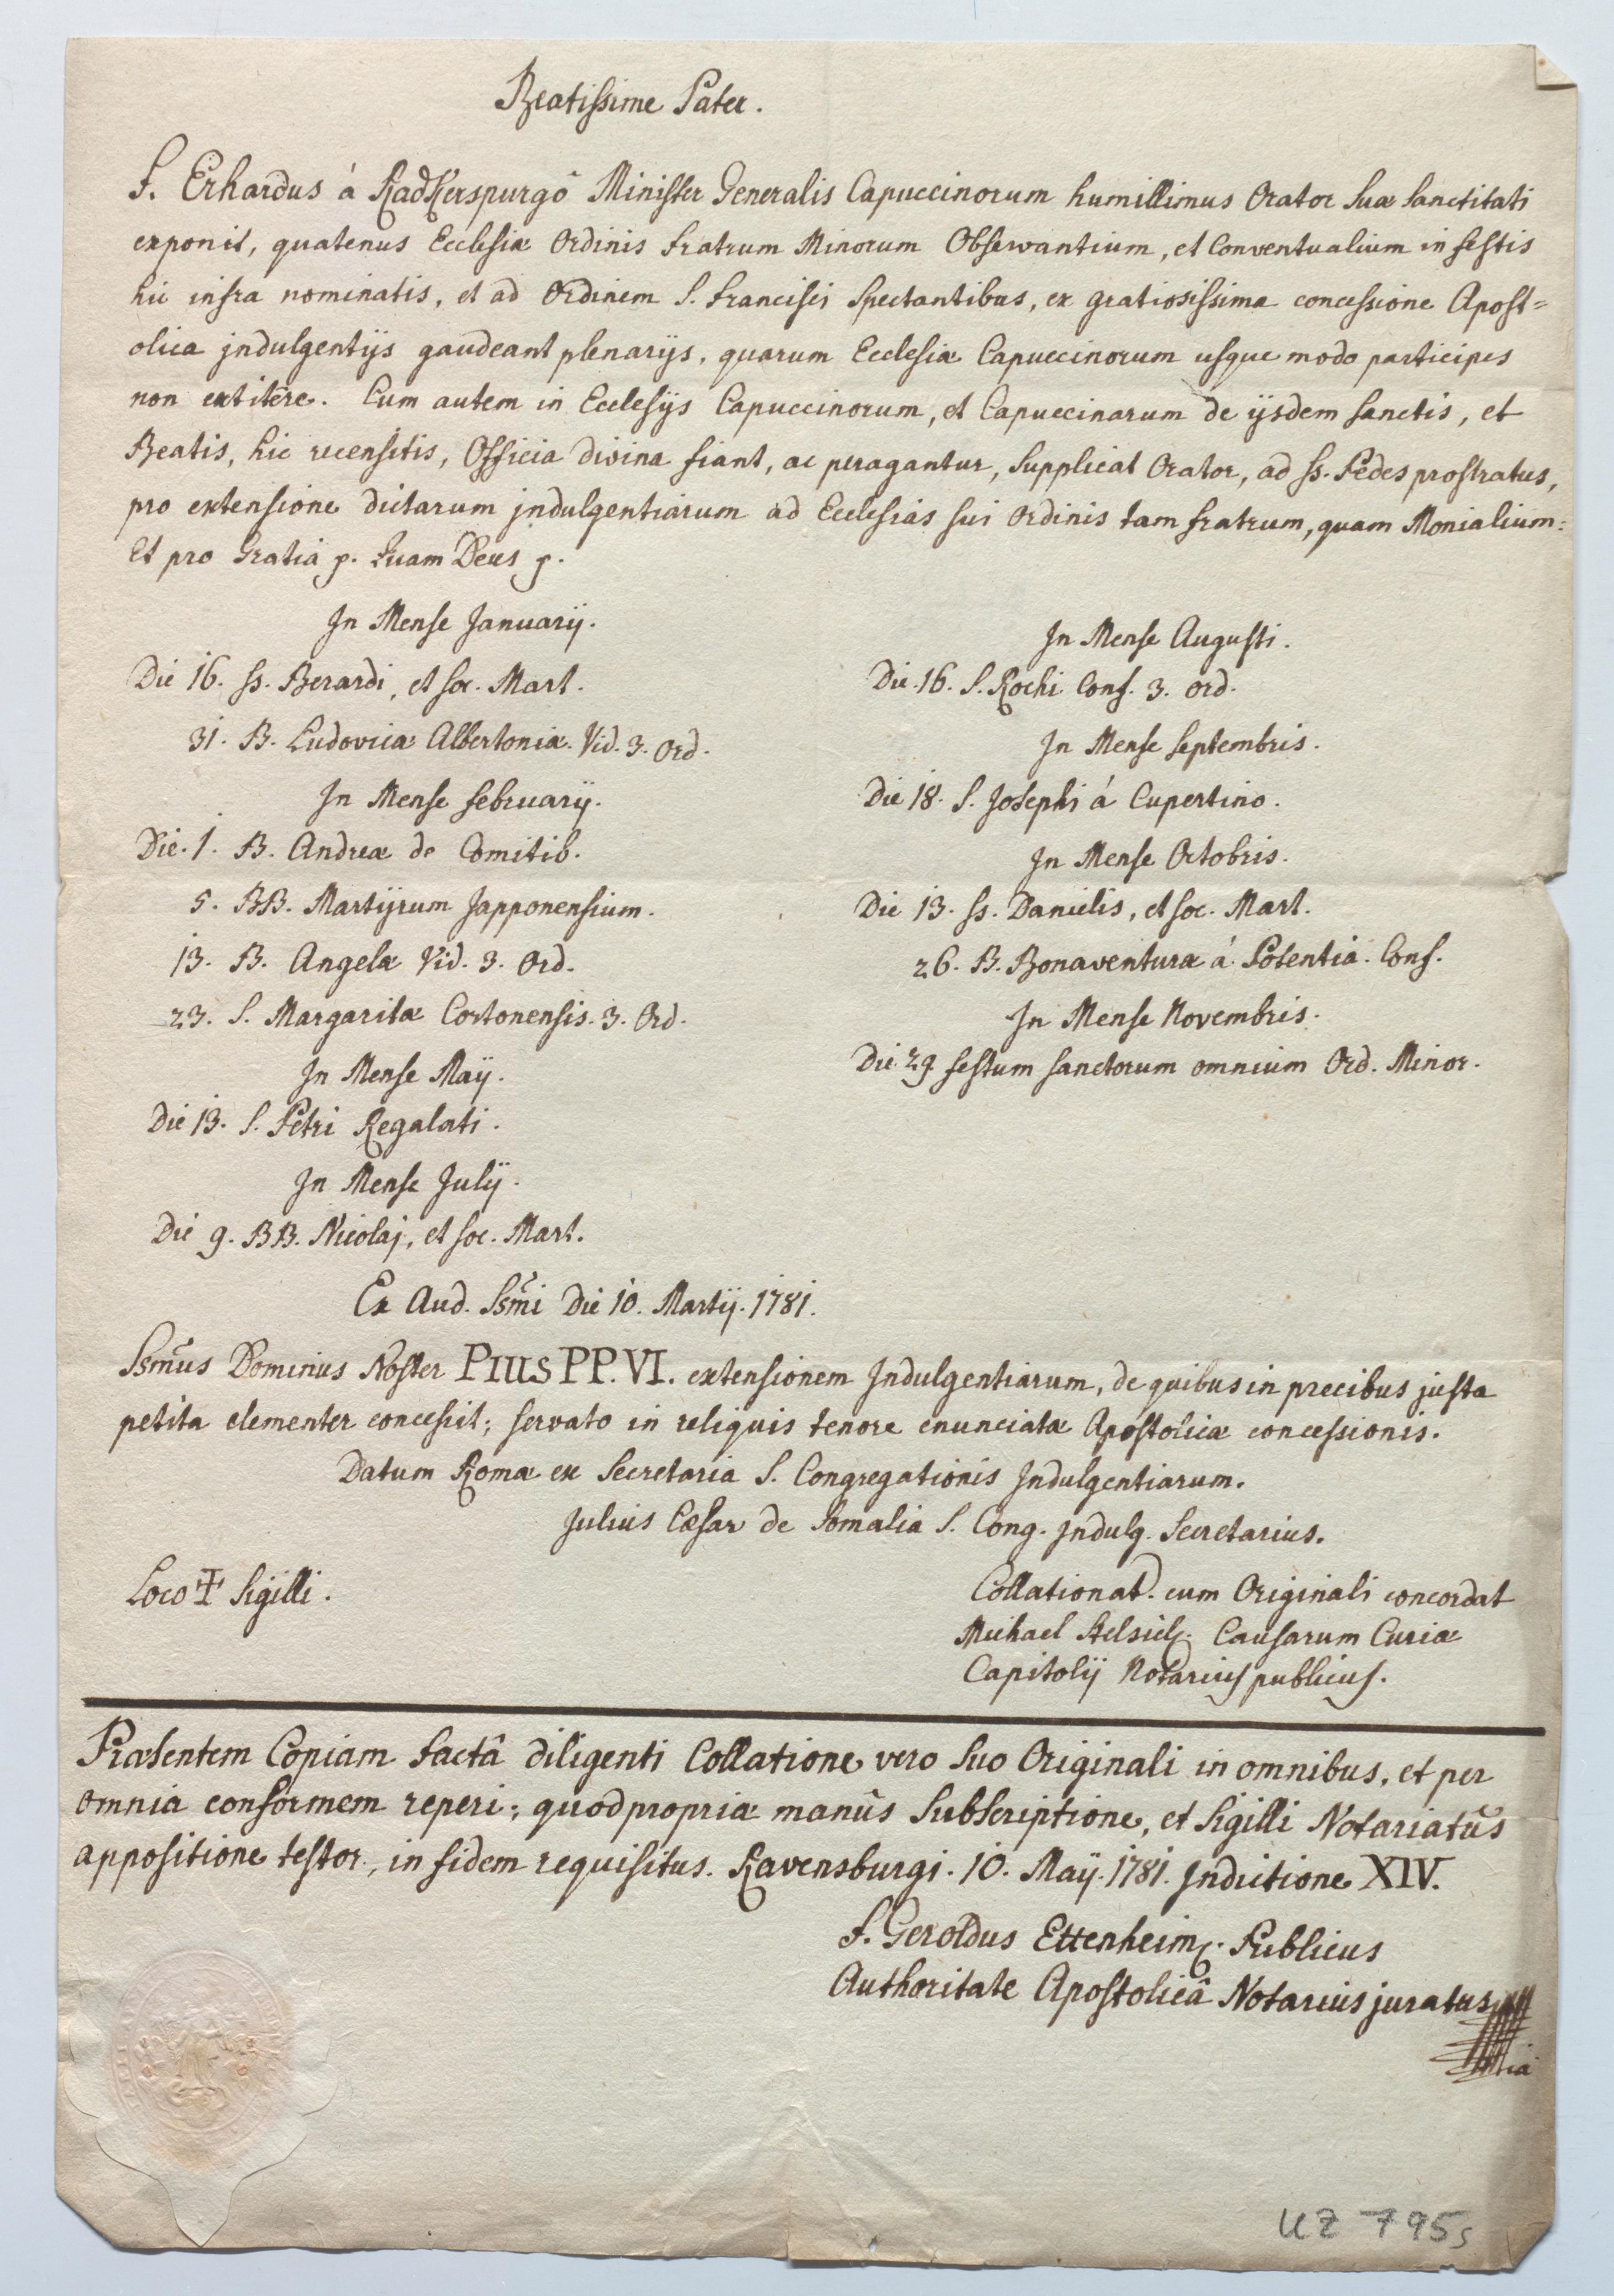 Beatissime Pater.
F. Erhardus à Radkerspurgô Minister Generalis Capuccinorum humillimus Orator Suæ Sanctitati
exponit, quatenus Ecclesiæ Ordinis Fratrum Minorum Observantium, et Conventualium in festis
hic infra nominatis, et ad Ordinem S. Francisci Spectantibus, ex gratiosissima concessione Apost=
olica jndulgentijs gaudeant plenarijs, quarum Ecclesiæ Capuccinorum usque modo participes
non extitêre. Cum autem in Ecclesijs Capuccinorum, et Capuccinarum de ijsdem Sanctis, et
Beatis, hic recensitis, Officia divina fiant, ac peragantur, Supplicat Orator, ad ss. Pedes prostratus,
pro extensione dictarum jndulgentiarum ad Ecclesias sui Ordinis tam fratrum, quam Monialium:
Et pro Gratiâ p. Quam Deus p.
In Mense Januarij.
Die 16. ss. Berardi, et soc. Mart.
31. B. Ludovicæ Albertoniæ. Vid. 3. Ord.
In Mense februarij.
Die. 1. B. Andreæ de Comitib.
5. BB. Martijrum Japponensium.
13. B. Angelæ Vid. 3. Ord.
23. S. Margaritæ Cortonensis. 3. Ord.
In Mense Maij.
Die 13. S. Petri Regalati.
In Mense Julij.
Die 9. BB. Nicolaj, et soc. Mart.
In Mense Augusti.
Die. 16. S. Rochi Conf. 3. Ord.
In Mense Septembris.
Die 18. S. Josephi á Cupertino.
In Mense Octobris.
Die 13. ss. Danielis, et soc. Mart.
26. B. Bonaventuræ á Potentia. Conf.
In Mense Novembris.
Die 29 festum sanctorum omnium Ord. Minor.
Ex Aud. Ssmi Die 10. Martij. 1781.
Ssmus Dominus Noster PIUS PP. VI. extensionem Jndulgentiarum, de quibus in precibus justa
petita clementer concessit; servato in reliquis tenore enunciatæ Apostolicæ concessionis.
Datum Romæ ex Secretaria S. Congregationis Jndulgentiarum.
Julius Cæsar de Somalia S. Cong. Jndulg. Secretarius.
Loco ✝ Sigilli.
Collationat. cum Originali concordat
Michael Causarum Curiæ
Capitolij Notarius publicus.
Præsentem Copiam factâ diligenti Collatione vero Suo Originali in omnibus, et per
omnia conformem reperi; quod propriæ manûs Subscriptione, et Sigilli Notariatûs
appositione testor, in fidem requisitus. Ravensburgi. 10. Maij. 1781. Jndictione XIV.
F. Geroldus Ettenheim. Publicus
Authoritate Apostolicâ Notarius juratus
UZ 795s